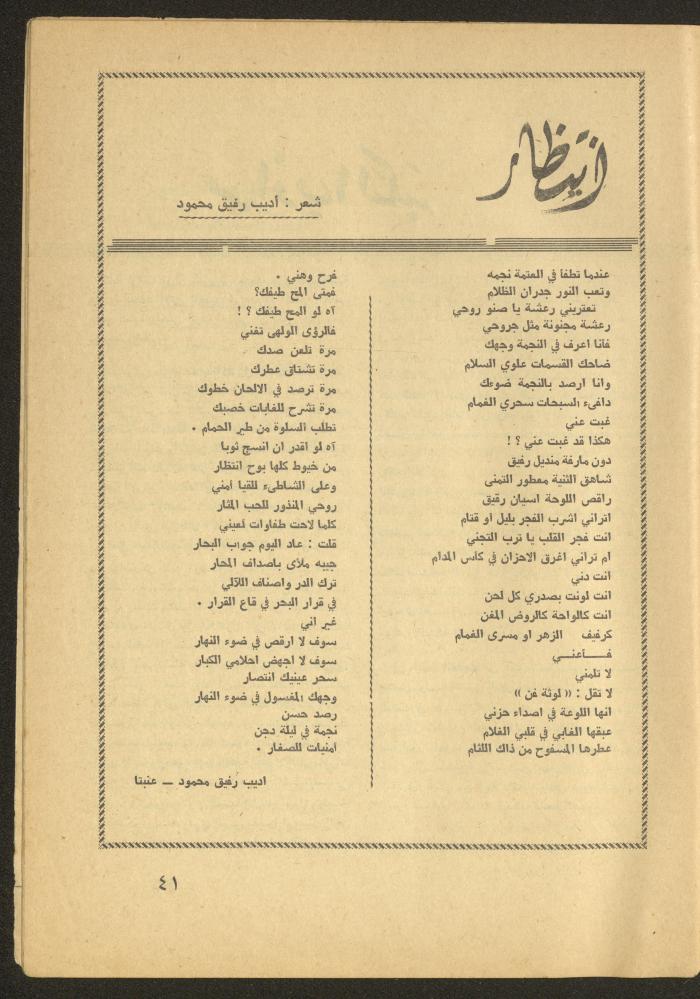 انتظار
شعر : أديب رفيق محمود
عندما تطفأ في العتمة نجمه
وتعب النور جدران الظلام
تعتريني رعشة يا صنو روحي
رعشة مجنونة مثل جروحي
فأنا اعرف في النجمة وجهك
ضاحك القسمات علوي السلام
وانا ارصد بالنجمة ضوءك
دافىء السبحات سحري الغمام
غبت عني
هكذا قد غبت عني ؟ !
دون مارفة منديل رفيق
شاهق الثنية معطور التمنى
راقص اللوحة اسيان رقيق
اتراني اشرب الفجر بليل او قتام
انت فجر القلب يا ترب التجني
ام تراني اغرق الاحزان في كأس المدام
انت دني
انت لونت بصدري كل لحن
انت كالواحة كالروض المفن
كرفيف الزهر او مسرى الغمام
فــأعنــي
لا تلمني
لا تقل : (( لوثة فن ))
انها اللوعة في اصداء حزني
عبقها الغابي في قلبي الغلام
عطرها المسفوح من ذاك اللثام
فرح وهني .
فمتى المح طيفك؟
آه لو المح طيفك ؟ !
فالرؤى الولهى تغني
مرة تلعن صدك
مرة تشتاق عطرك
مرة ترصد في الالحان خطوك
مرة تشرح للغابات خصبك
تطلب السلوة من طير الحمام .
آه لو اقدر ان انسج ثوبا
من خيوط كلها بوح انتظار
وعلى الشاطىء للقيا أمني
روحي المنذور للحب المثار
كلما لاحت طفاوات لعيني
قلت : عاد اليوم جواب البحار
جيبه ملأى بأصداف المحار
ترك الدر واصناف اللآلي
في قرار البحر في قاع القرار .
غير اني
سوف لا ارقص في ضوء النهار
سوف لا اجهض احلامي الكبار
سحر عينيك انتصار
وجهك المغسول في ضوء النهار
رصد حسن
نجمة في ليلة دجن
أمنيات للصغار .
اديب رفيق محمود ـــ عنبتا
٤١